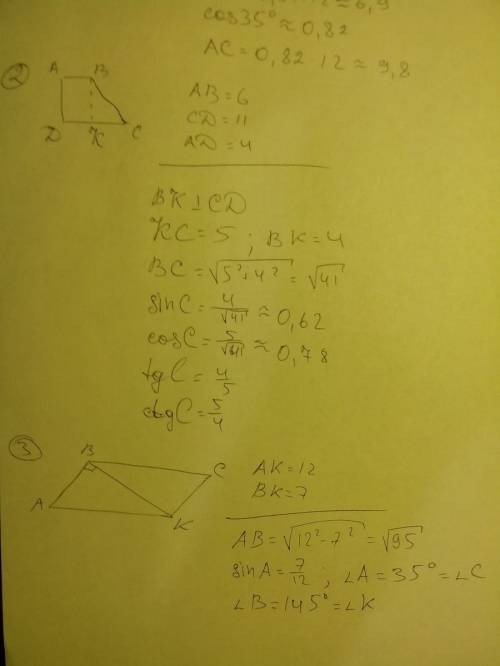 cos35° ≈ 0,82
AC = 0,82 · 12 ≈ 9,8
②
A B
D K C
AB = 6
CD = 11
AD = 4
BK ⊥ CD
KC = 5 ; BK = 4
BC = √(5²+4²) = √41
sinC = 4/√41 ≈ 0,62
cosC = 5/√41 ≈ 0,78
tgC = 4/5
ctgC = 5/4
③
B
C
A
K
AK = 12
BK = 7
AB = √(12²-7²) = √95
sinA = 7/12 ; ∠A = 35° = ∠C
∠B = 145° = ∠K